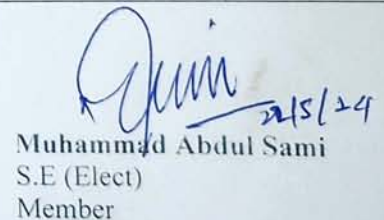 22/5/24
Muhammad Abdul Sami
S.E (Elect)
Member